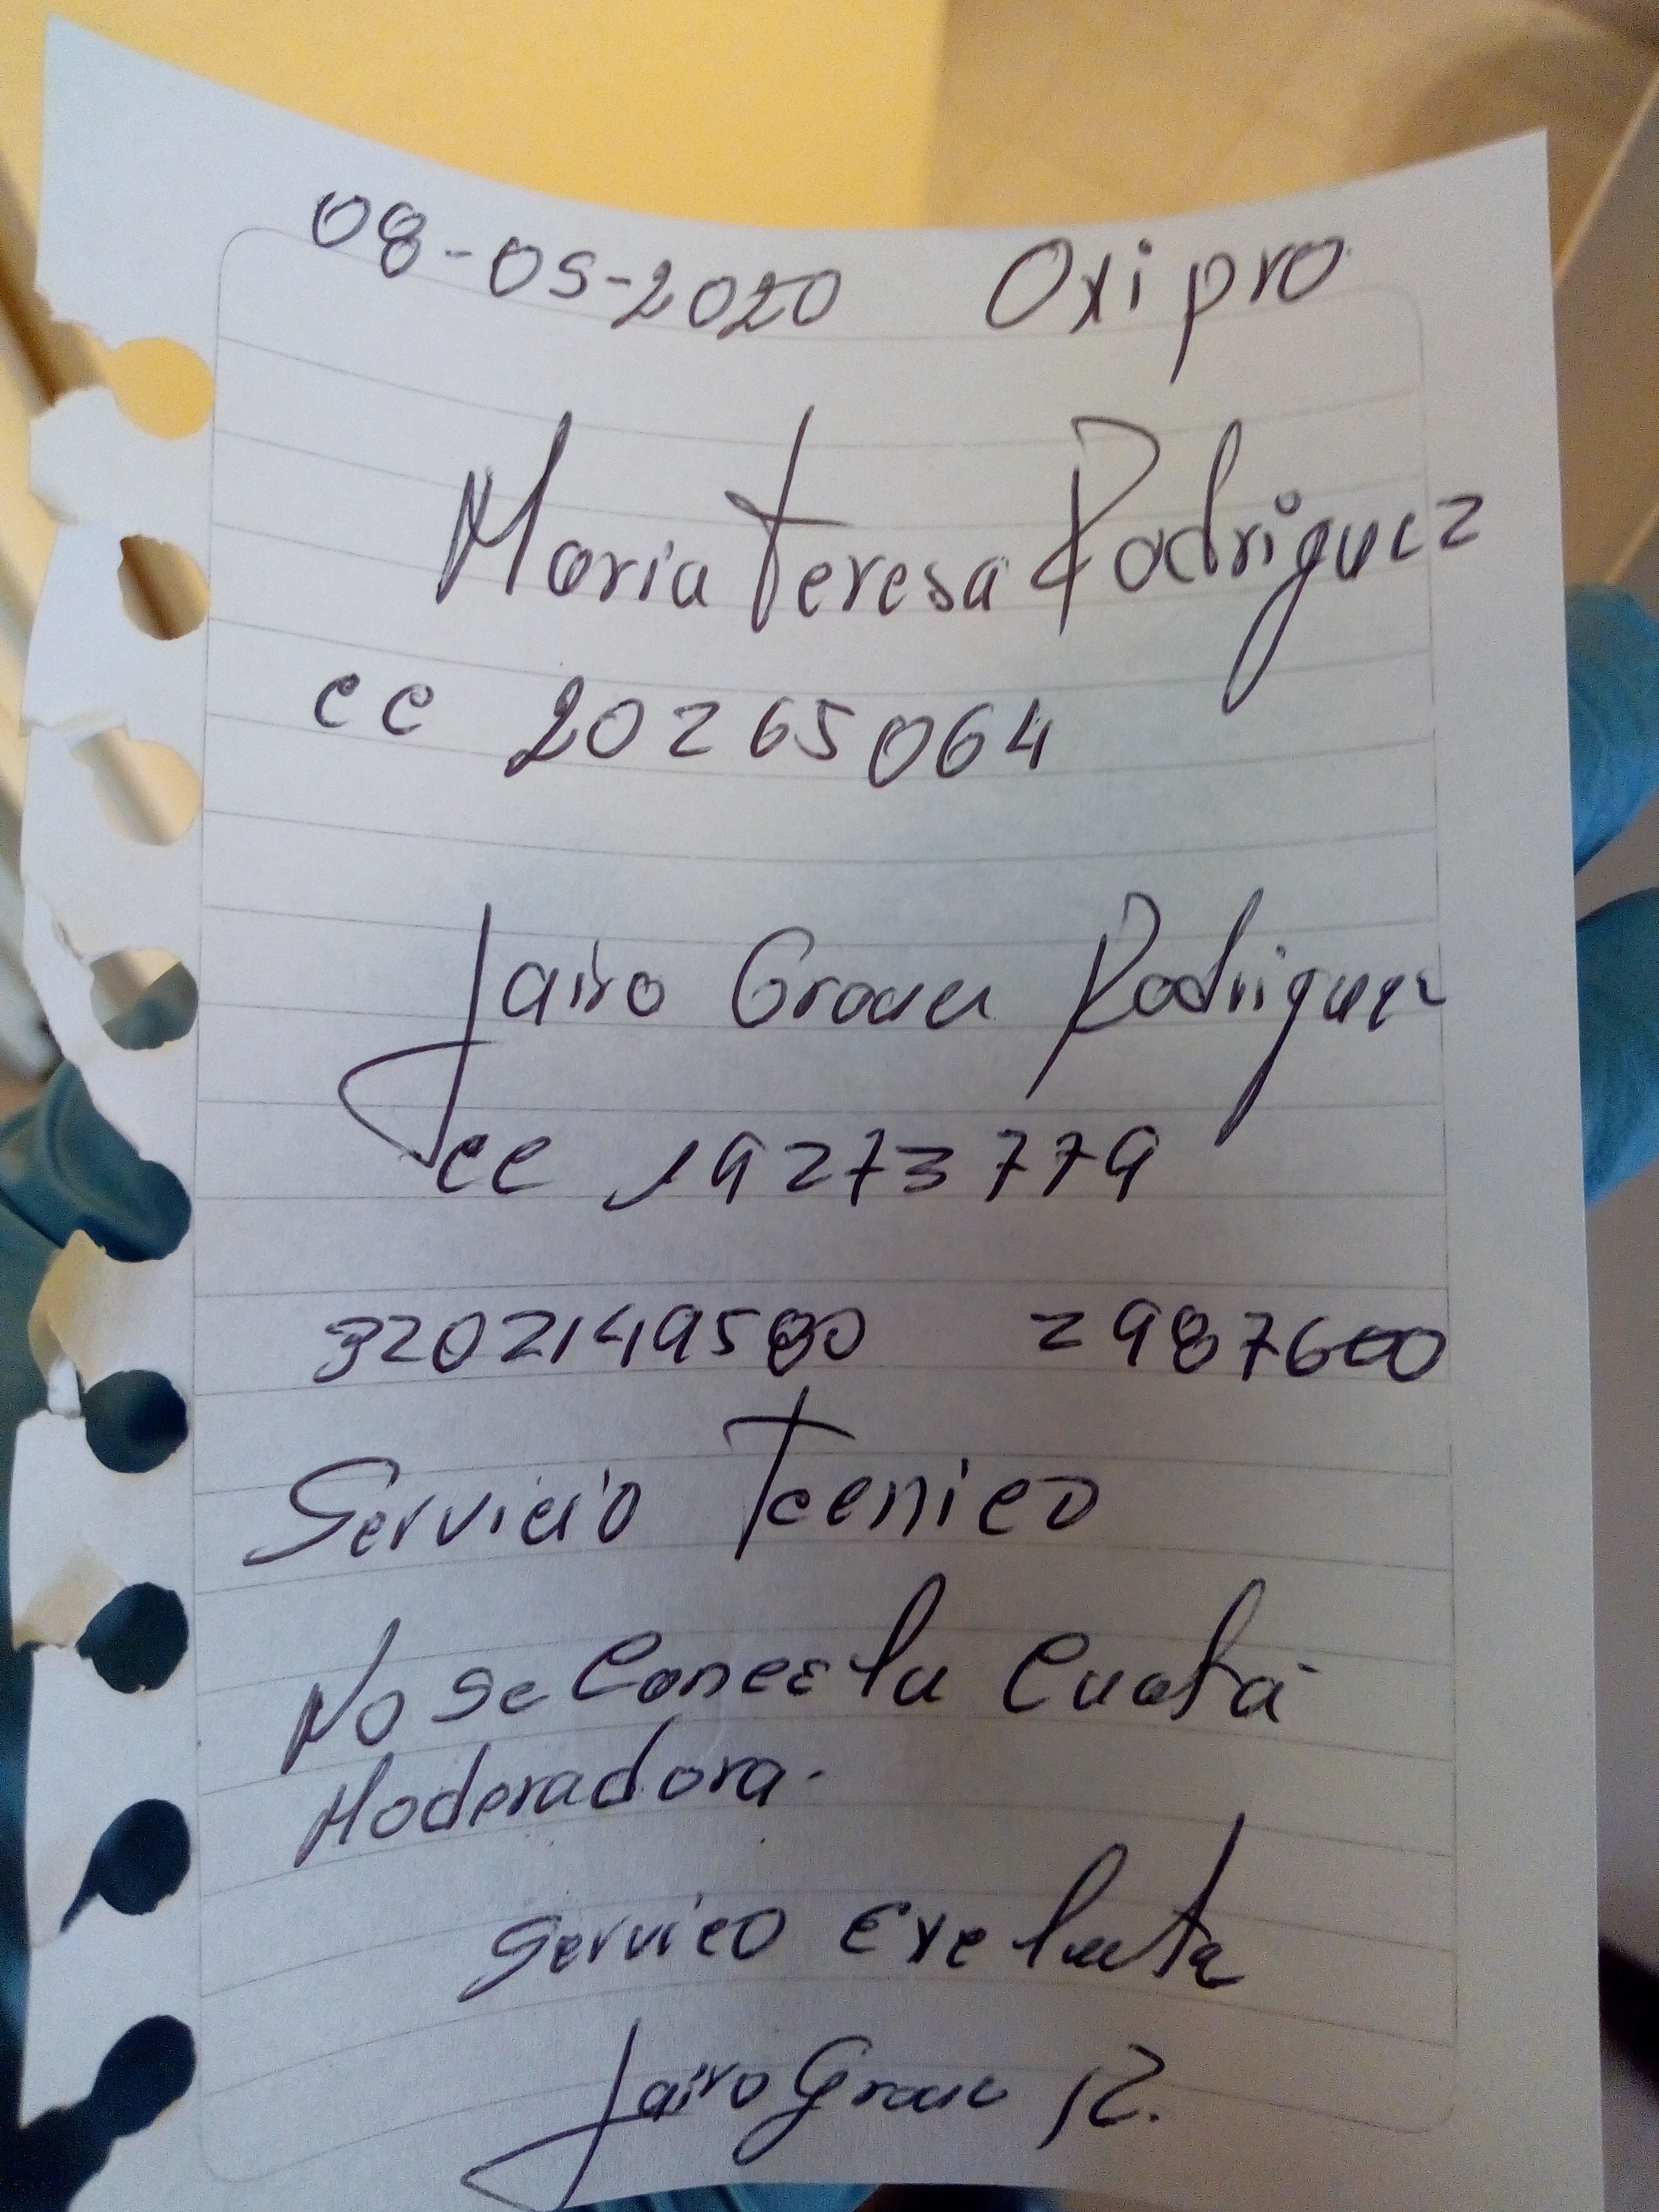 08-05-2020 Oxipro
Maria Teresa Rodriguez
cc 20265064
Jairo Rodriguez
cc 19273779
3202149580 2987600
Servicio Tecnico
No se Conecta Cuota
Moderadora.
Servico Exelente
Jairo R.